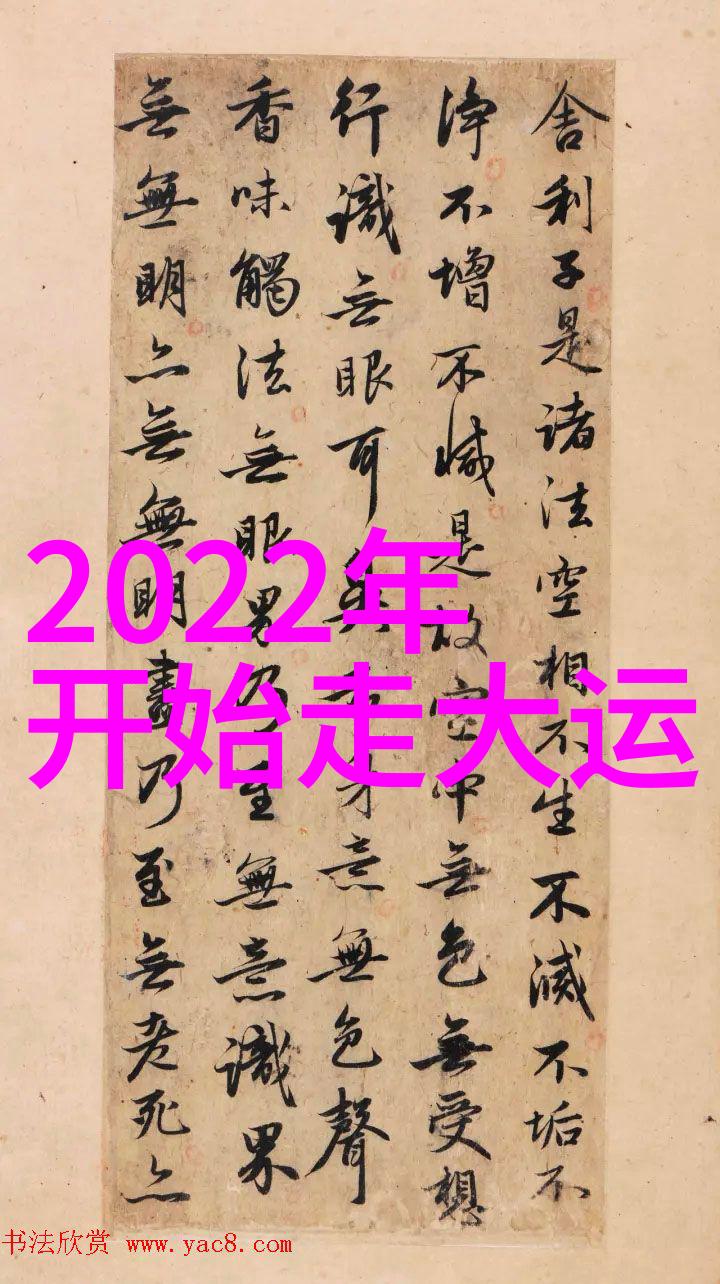 舍利子是諸法空相不生不滅不垢不
淨不增不減是故空中無色無受想
行識無眼耳鼻舌身意無色聲
香味觸法無眼界乃至無意識界
無無明亦無無明盡乃至無老死亦
2022年
开始走大运
书法欣赏 www.yac8.com